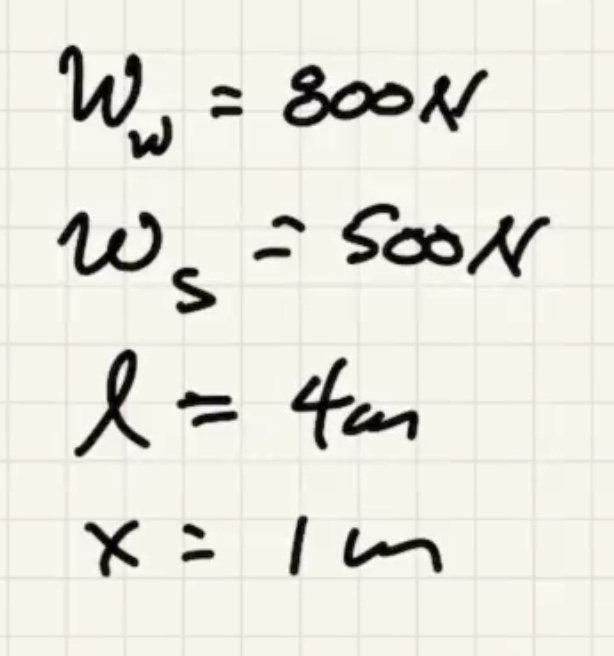 W_w = 800N
w_s = 500N
l = 4m
x = 1m